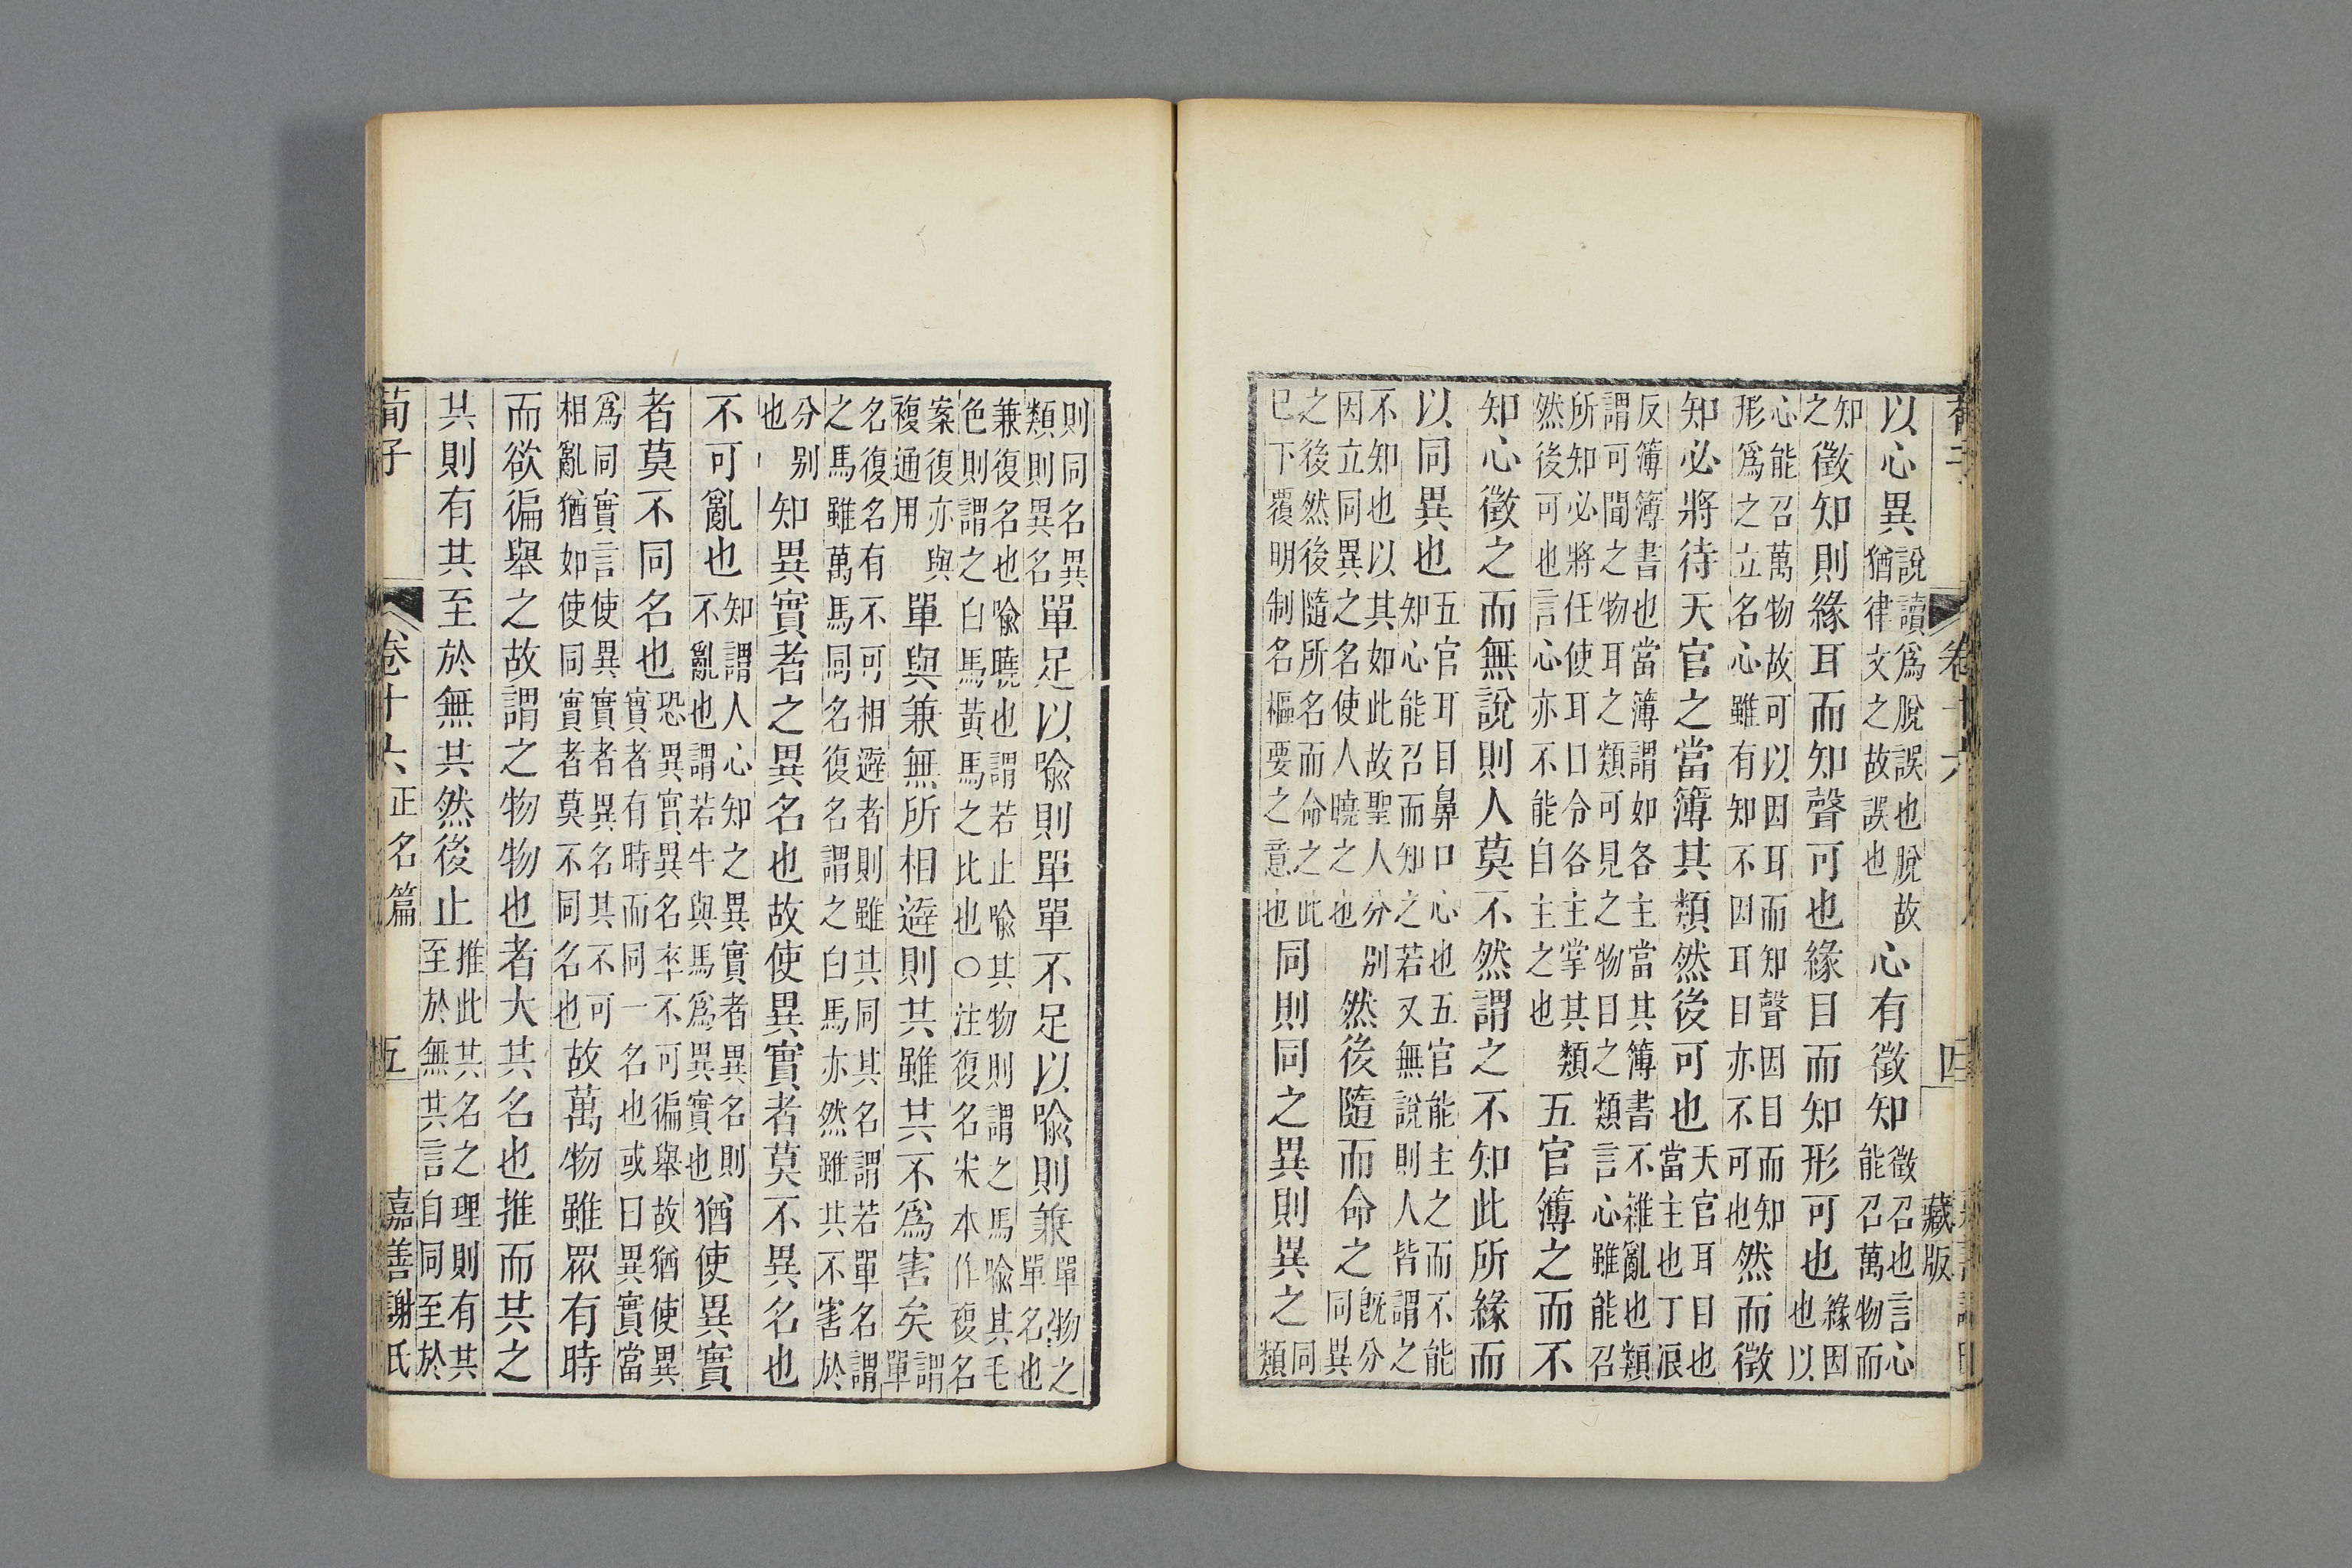 卷十六 四 藏版
以心異說讀爲脫誤也脫故猶律文之故誤也心有徵知徵召也言心能召萬物而
知之徵知則緣耳而知聲可也緣目而知形可也緣因也以
心能召萬物故可以因耳而知聲因目而知形爲之立名心雖有知不因耳目亦不可也然而徵
知必將待天官之當簿其類然後可也天官耳目也當主也丁浪
反簿簿書也當簿謂如各主當其簿書不雜亂也類謂可聞之物耳之類可見之物目之類言心雖能召
所知必將任使耳目令各主掌其類然後可也言心亦不能自主之也五官簿之而不
知心徵之而無說則人莫不然謂之不知此所緣而
以同異也五官耳目鼻口心也五官能主之而不能知心能召而知之若又無說則人皆謂之
不知也以其如此故聖人分別因立同異之名使人曉之也然後隨而命之旣分同異
之後然後隨所名而命之此已下覆明制名樞要之意也同則同之異則異之同類
則同名異類則異名單足以喻則單單不足以喻則兼單物之單名也
兼復名也喻曉也謂若止喻其物則謂之馬喻其毛色則謂之白馬黃馬之比也〇注復名宋本作複名
案復亦與複通用單與兼無所相避則共雖共不爲害矣謂單
名復名有不可相避者則雖共同其名謂若單名謂之馬雖萬馬同名復名謂之白馬亦然雖共不害於
分別也知異實者之異名也故使異實者莫不異名也
不可亂也知謂人心知之異實者異名則不亂也謂若牛與馬爲異實也猶使異實
者莫不同名也恐異實異名卒不可徧舉故猶使異實者有時而同一名也或曰異實當
爲同實言使異實者異名其不可相亂猶如使同實者莫不同名也故萬物雖眾有時
而欲徧舉之故謂之物物也者大共名也推而共之
共則有共至於無共然後止推此共名之理則有共至於無共言自同至於
荀子 卷十六正名篇 五 嘉善謝氏